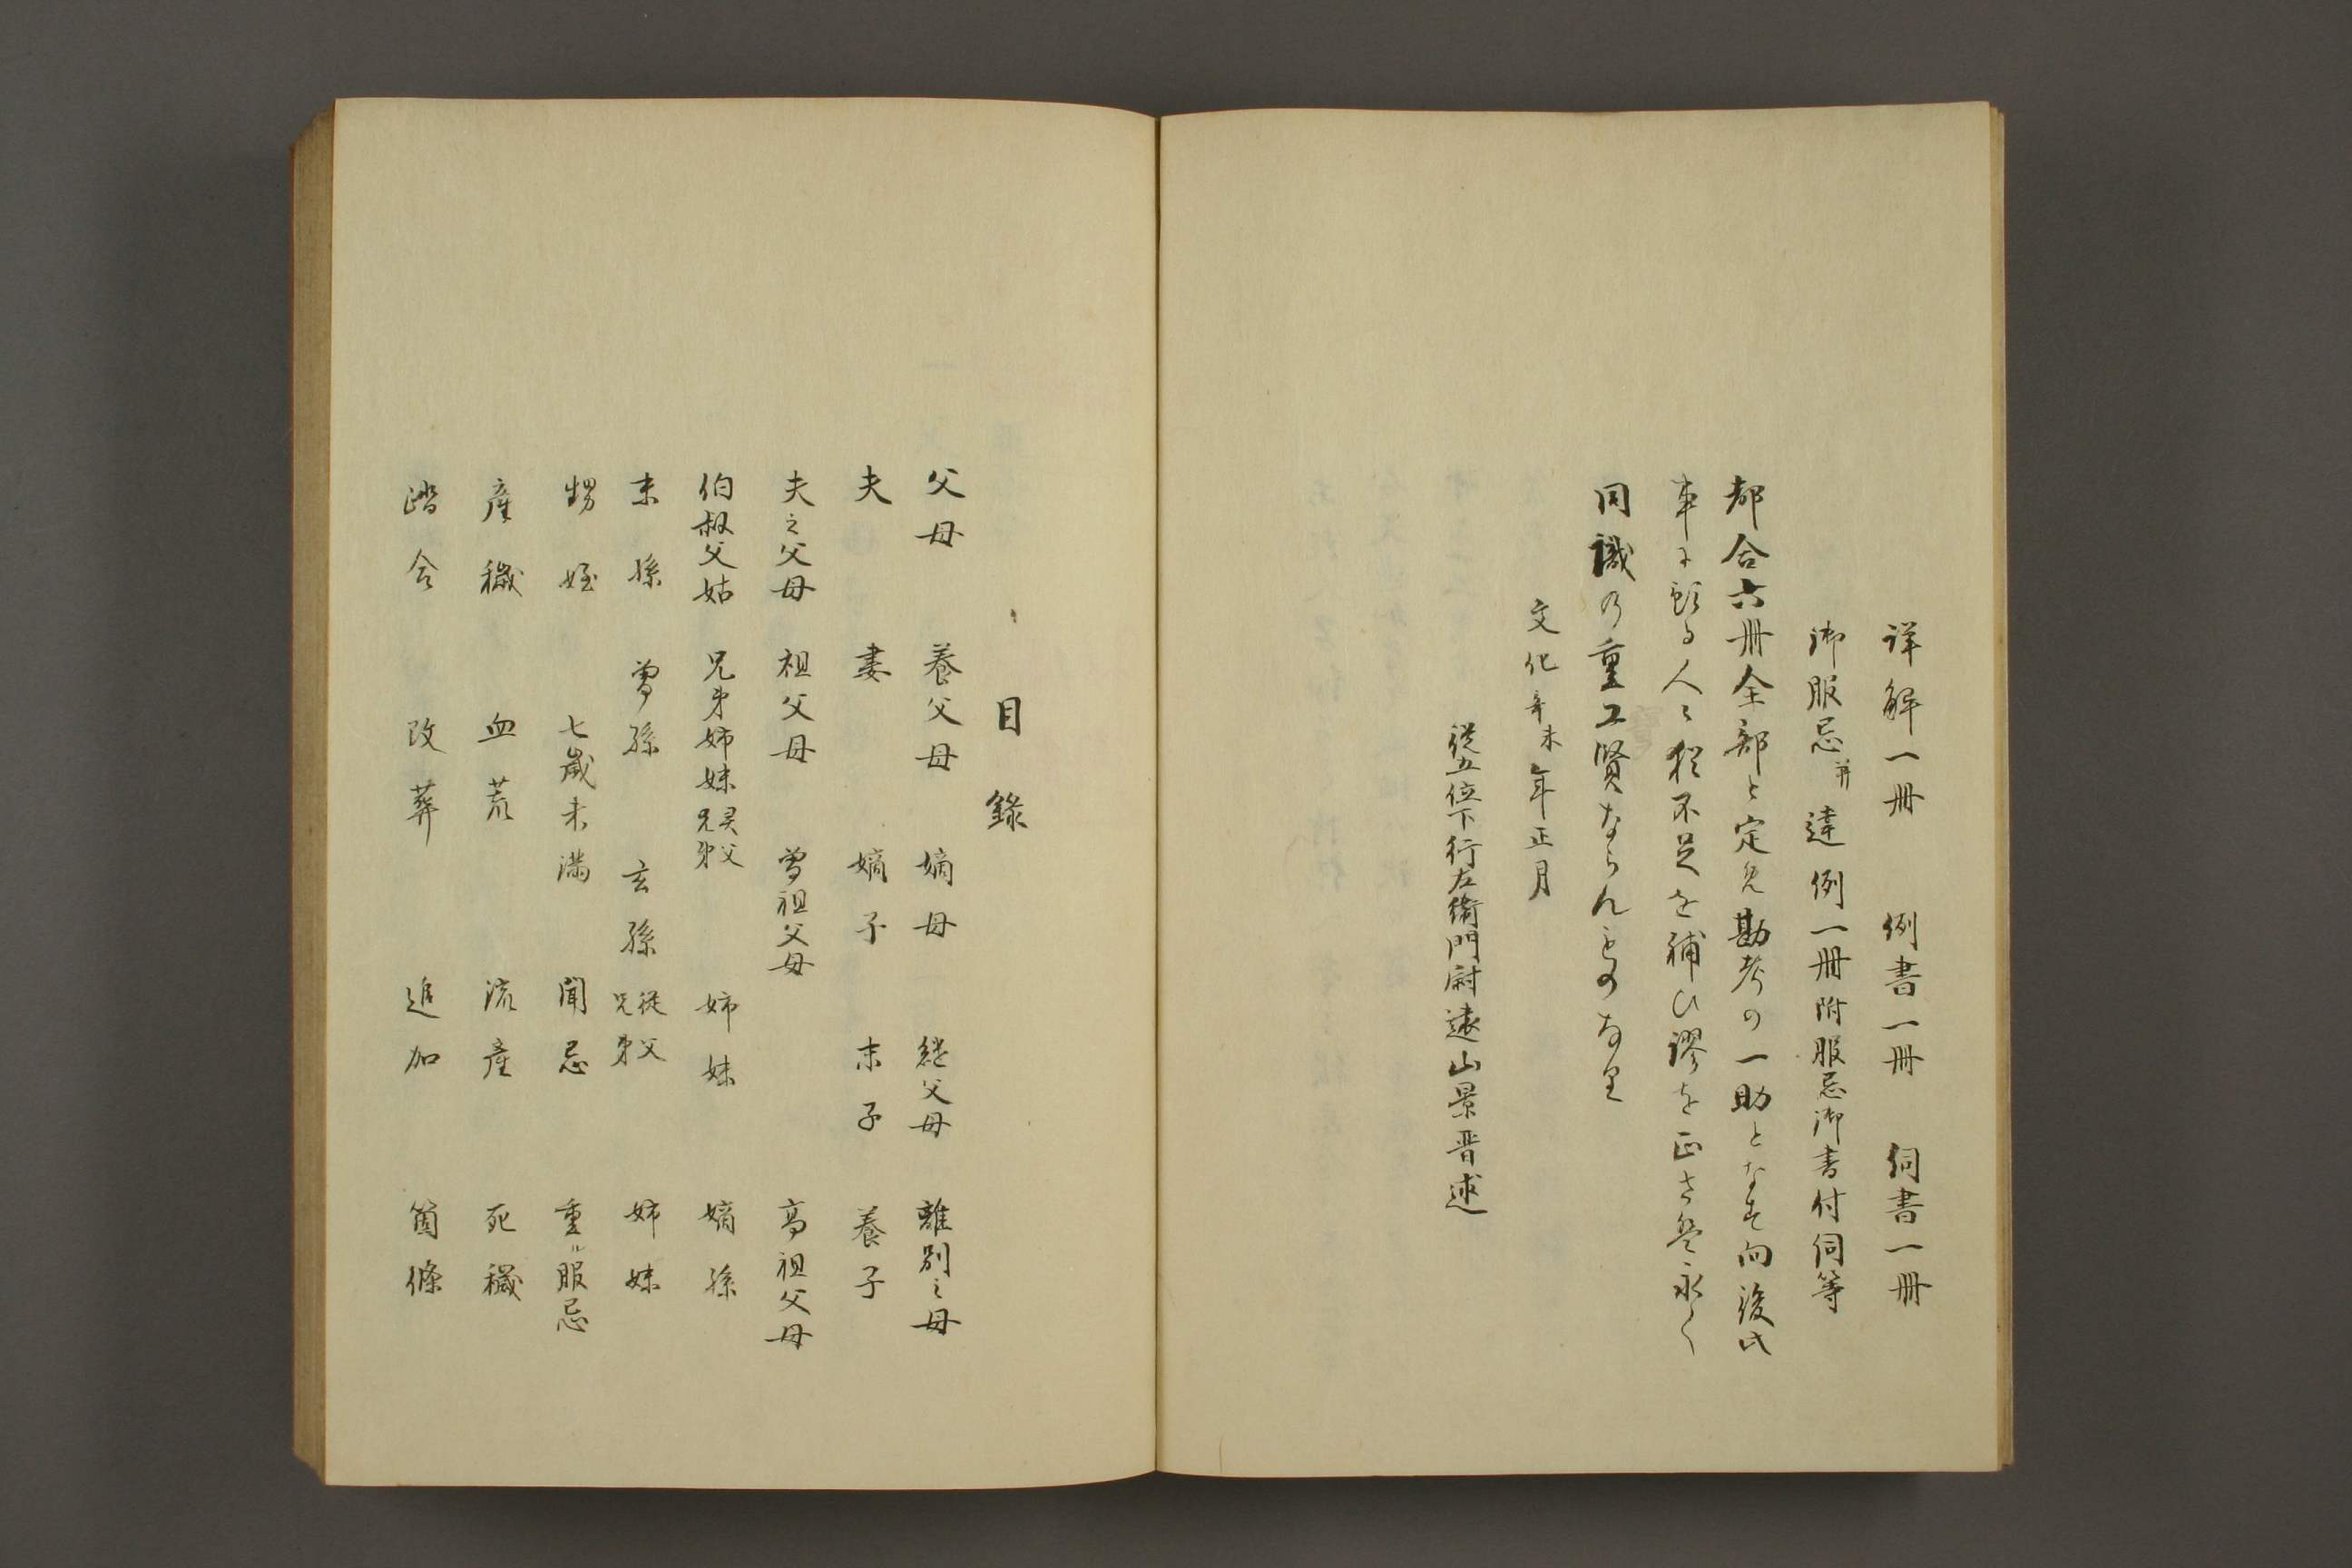 詳解一冊　例書一冊　伺書一冊
御服忌并違例一冊附服忌御書付伺等
都合六冊全部と定め勘考の一助となす向後此
事に預る人々猶不足を補ひ謬を正さは永く
同職の重工賢ならんものなり
文化辛未年正月
従五位下行左衛門尉遠山景晋述
目録
父母　養父母　嫡母　継父母　離別之母
夫　妻　嫡子　末子　養子
夫之父母　祖父母　曽祖父母　高祖父母
伯叔父姑　兄弟姉妹　異父兄弟　姉妹　嫡孫
末孫　曽孫　玄孫　従父兄弟　姉妹
甥姪　七歳未満　聞忌　重ル服忌
産穢　血荒　流産　死穢
踏合　改葬　追加　箇條